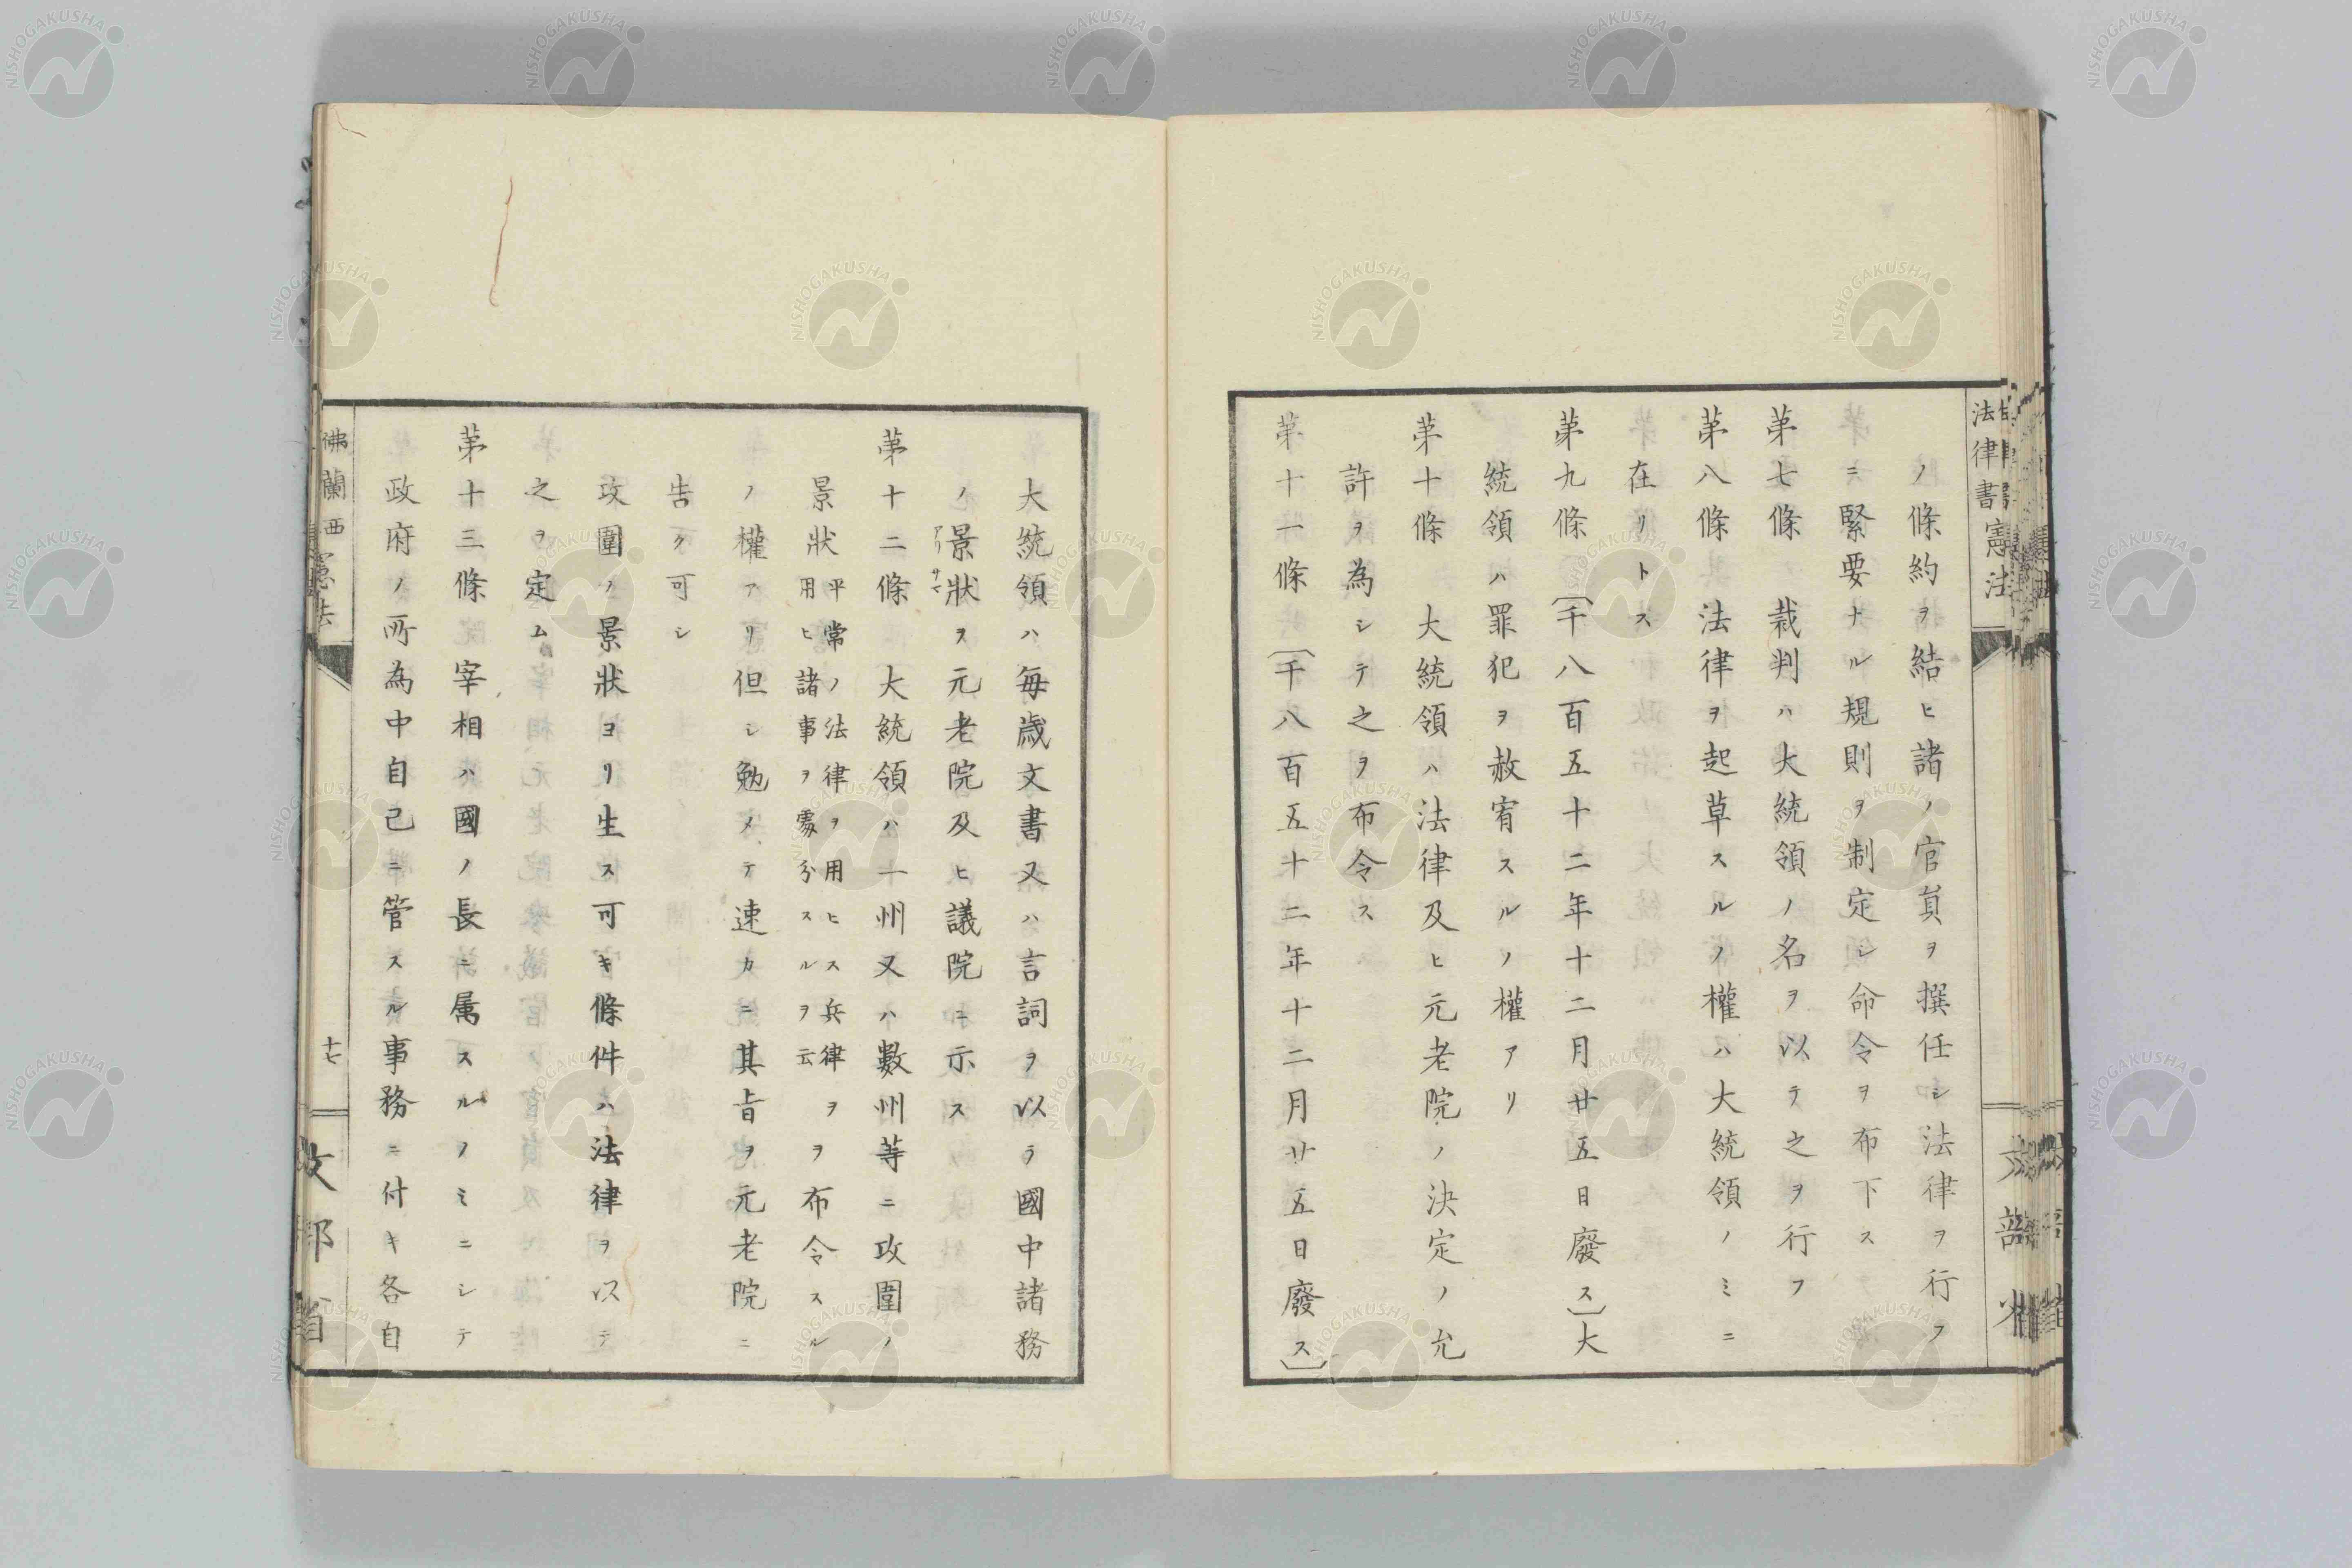 法律書憲法
ノ條約ヲ結ヒ諸ノ官員ヲ撰任シ法律ヲ行フ
ニ緊要ナル規則ヲ制定シ命令ヲ布下ス
第七條 裁判ハ大統領ノ名ヲ以テ之ヲ行フ
第八條 法律ヲ起草スルノ權ハ大統領ノミニ
在リトス
第九條〔千八百五十二年十二月廿五日廢ス〕大
統領ハ罪犯ヲ赦宥スルノ權アリ
第十條 大統領ハ法律及ヒ元老院ノ決定ノ允
許ヲ為シテ之ヲ布令ス
第十一條〔千八百五十二年十二月廿五日廢ス〕
大統領ハ毎歳文書又ハ言詞ヲ以テ國中諸務
ノ景狀ヲ元老院及ヒ議院ニ示ス
アリサマ
第十二條 大統領ハ一州又ハ數州等ニ攻圍ノ
景狀平常ノ法律ヲ用ヒス兵律ヲ用ヒ諸事ヲ處分スルヲ云ヲ布令スル
ノ權アリ但シ勉メテ速カニ其旨ヲ元老院ニ
告ク可シ
攻圍ノ景狀ヨリ生ス可キ條件ハ法律ヲ以テ
之ヲ定ム
第十三條 宰相ハ國ノ長ニ属スルノミニシテ
政府ノ所為中自己ニ管スル事務ニ付キ各自
佛蘭西憲法
十七
文部省